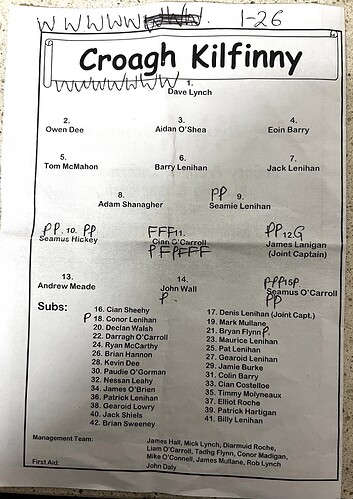 W W W W W 1-26
Croagh Kilfinny
W W W W W W W W
1.
Dave Lynch
2. 3. 4.
Owen Dee Aidan O'Shea Eoin Barry
5. 6. 7.
Tom McMahon Barry Lenihan Jack Lenihan
8. PP 9.
Adam Shanagher Seamie Lenihan
PP. 10. PP FFF 11. PP 12. G
Seamus Hickey Cian O'Carroll James Lanigan
PFPFFF (Joint Captain)
13. 14. PPP 15 P
Andrew Meade John Wall Seamus O'Carroll
P PP
Subs:
16. Cian Sheehy 17. Denis Lenihan (Joint Capt.)
P 18. Conor Lenihan 19. Mark Mullane
20. Declan Walsh 21. Bryan Flynn P.
22. Darragh O'Carroll 23. Maurice Lenihan
24. Ryan McCarthy 25. Pat Lenihan
26. Brian Hannon 27. Gearoid Lenihan
28. Kevin Dee 29. Jamie Burke
30. Paudie O'Gorman 31. Colin Barry
32. Nessan Leahy 33. Cian Costelloe
34. James O'Brien 35. Timmy Molyneaux
36. Patrick Lenihan 37. Elliot Roche
38. Gearoid Lowry 39. Patrick Hartigan
40. Jack Shiels 41. Billy Lenihan
42. Brian Sweeney
Management Team: James Hall, Mick Lynch, Diarmuid Roche,
Liam O'Carroll, Tadhg Flynn, Conor Madigan,
Mike O'Connell, James Mullane, Rob Lynch
First Aid: John Daly